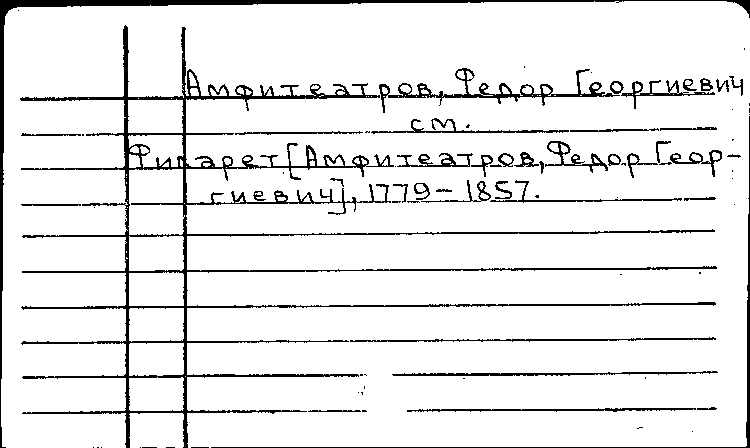 Амфитеатров, Федор Георгиевич
см.
Филарет [Амфитеатров, Федор Геор-
гиевич], 1779-1857.